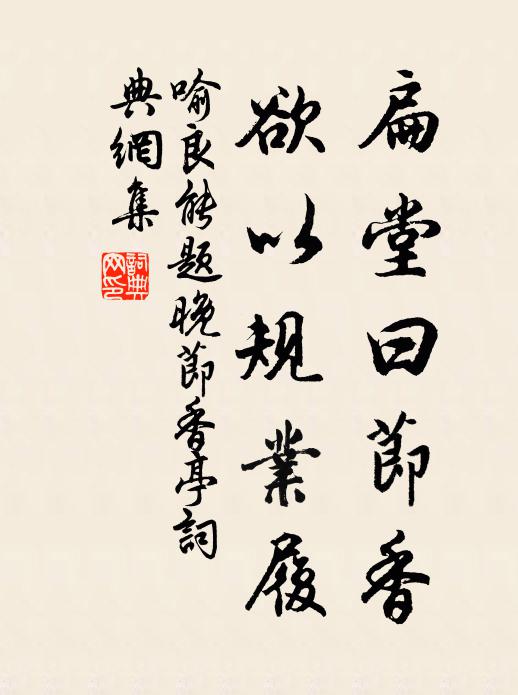 扁堂曰節香
欲以規業履
喻良能題晚節香亭詞
典網集
詞典
网印